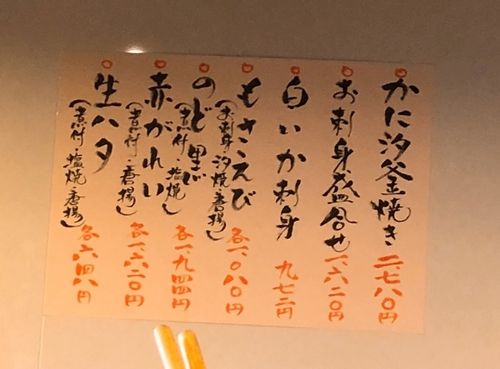 かに汐釜焼き 二、七八〇円
お刺身盛合せ 一、六二〇円
白いか刺身 九七二円
もさえび
(お刺身・汐焼・唐揚) 各一、〇八〇円
のど黒
(煮付・塩焼) 各一、九四四円
赤がれい
(煮付・唐揚) 各一、六二〇円
生ハタ
(煮付・塩焼・唐揚) 各六四八円